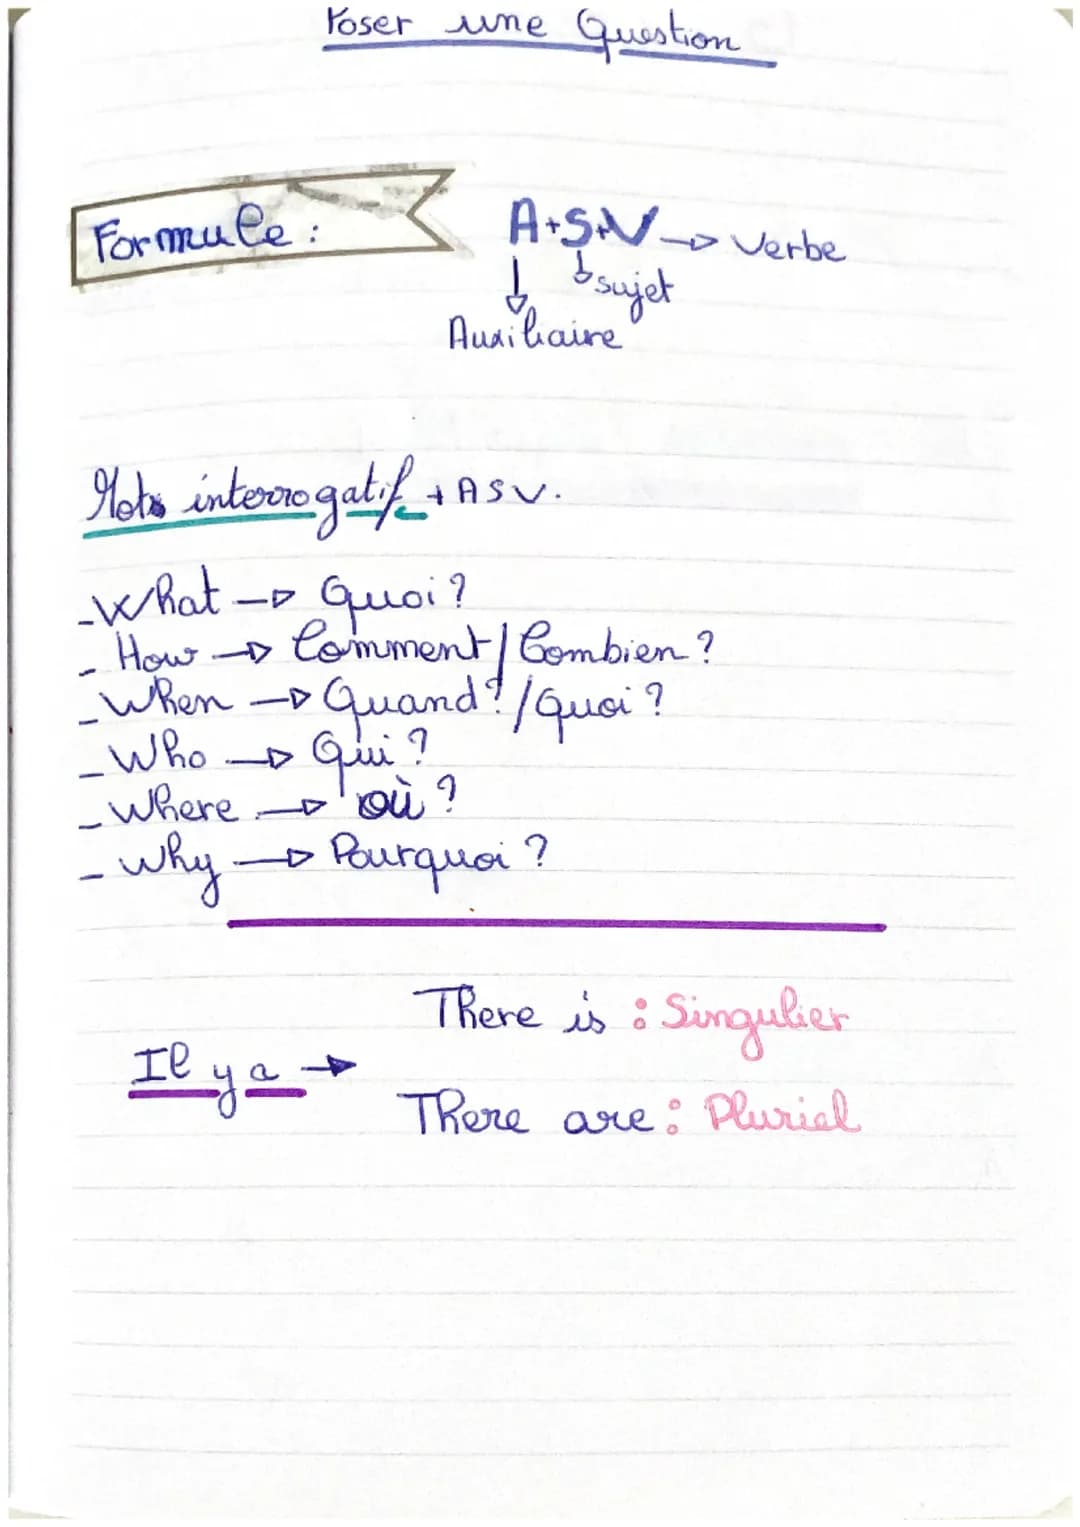 Poser une Question
Formule :
A+S+V → Verbe
↓ ↳ sujet
Auxiliaire
Mots interrogatif + ASV.
- What → Quoi ?
- How → Comment / Combien ?
- When → Quand ? / Quoi ?
- Who → Qui ?
- Where → où ?
- Why → Pourquoi ?
There is : Singulier
Il y a →
There are : Pluriel